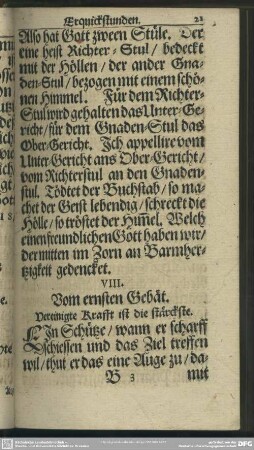 Erquickstunden. 21
Also hat Gott zween Stüle. Der
eine heist Richter-Stul/ bedeckt
mit der Höllen/ der ander Gna-
den-Stul/ bezogen mit einem schö-
nen Himmel. Für dem Richter-
Stul wird gehalten das Unter-Ge-
richt/ für dem Gnaden-Stul das
Ober-Gericht. Ich appellire vom
Unter-Gericht ans Ober-Gericht/
vom Richterstul an den Gnaden-
stul. Tödtet der Buchstab/ so ma-
chet der Geist lebendig/ schreckt die
Hölle/ so tröstet der Him̃el. Welch
einen freundlichen Gott haben wir/
der mitten im Zorn an Barmher-
tzigkeit gedencket.
VIII.
Vom ernsten Gebät.
Vereinigte Krafft ist die stärckste.
EIn Schütze/ wann er scharff
schiessen und das Ziel treffen
wil/ thut er das eine Auge zu/ da-
B 3 mit